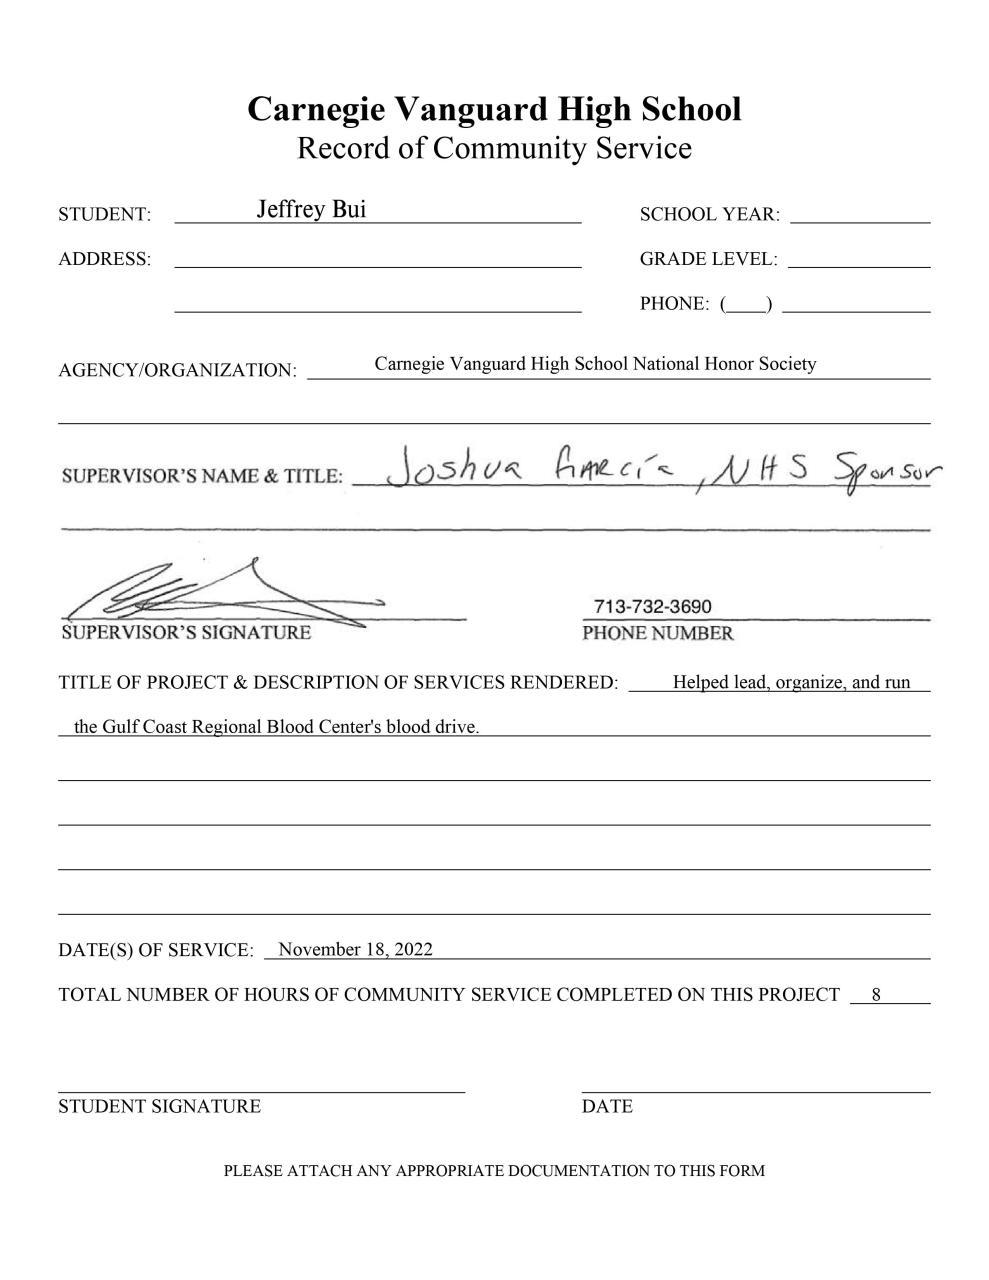 Carnegie Vanguard High School
Record of Community Service
STUDENT: Jeffrey Bui SCHOOL YEAR:
ADDRESS: GRADE LEVEL:
PHONE: (____)
AGENCY/ORGANIZATION: Carnegie Vanguard High School National Honor Society
SUPERVISOR'S NAME & TITLE: Joshua García, NHS Sponsor
713-732-3690
SUPERVISOR'S SIGNATURE PHONE NUMBER
TITLE OF PROJECT & DESCRIPTION OF SERVICES RENDERED: Helped lead, organize, and run
the Gulf Coast Regional Blood Center's blood drive.
DATE(S) OF SERVICE: November 18, 2022
TOTAL NUMBER OF HOURS OF COMMUNITY SERVICE COMPLETED ON THIS PROJECT 8
STUDENT SIGNATURE DATE
PLEASE ATTACH ANY APPROPRIATE DOCUMENTATION TO THIS FORM